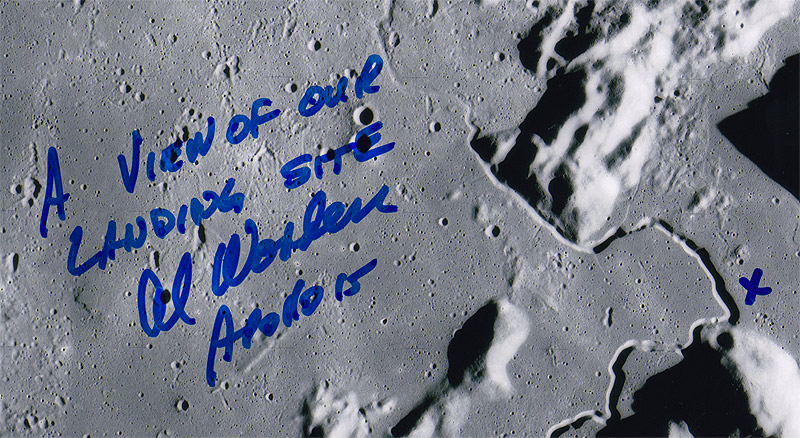 A VIEW OF OUR
LANDING SITE
Al Worden
APOLLO 15
X